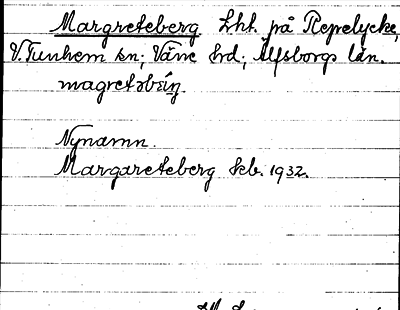 Margreteberg. Lht. på Repelycke,
V. Tunhem sn; Väne hd; Älfsborgs län.
magretəbæ̀ṇ.
Nynamn.
Margareteberg skb. 1932.